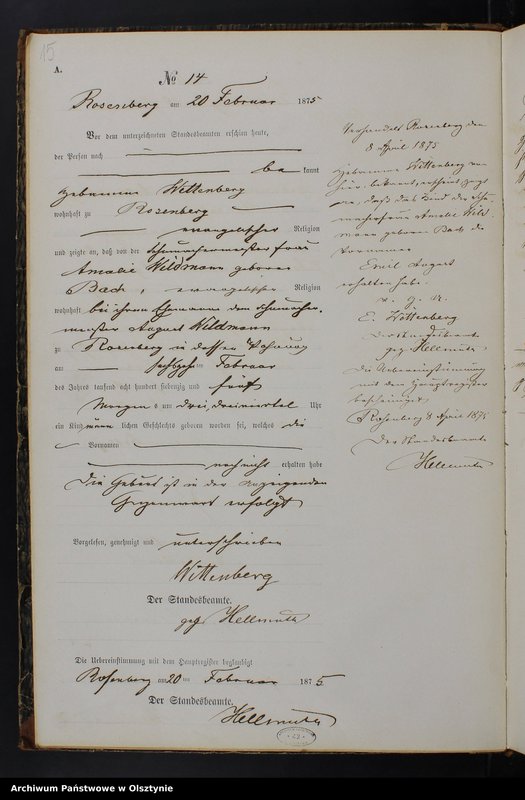 15
A.
No 14
Rosenberg am 20 Februar 1875
Vor dem unterzeichneten Standesbeamten erschien heute,
der Person nach
be kannt
Hebamme Wittenberg
wohnhaft zu Rosenberg
evangelischer Religion
und zeigte an, daß von der Schuhmachermeister frau
Amalie Wildmann geboren
Bach, evangelischer Religion
wohnhaft bei ihrem Ehemann dem Schuhmacher
meister August Wildmann
zu Rosenberg in dessen Behausung
am sechszehn ten Februar
des Jahres tausend acht hundert siebenzig und fünf
Morgens um drei dreiviertel Uhr
ein Kind mann lichen Geschlechts geboren worden sei, welches die
Vornamen
noch nicht erhalten habe
Die Geburt ist in der Anzeigenden
Gegenwart erfolgt
Vorgelesen, genehmigt und unterschrieben
Wittenberg
Der Standesbeamte.
gez Hellmuth
Die Uebereinstimmung mit dem Hauptregister beglaubigt
Rosenberg am 20 ten Februar 1875.
Der Standesbeamte.
Hellmuth
Verhandelt Rosenberg den
8 April 1875
Hebamme Wittenberg von
hier, bekannt, erscheint zeigt
an, daß das Kind der Schu
macherfrau Amalie Wild
mann geboren Bach die
Vornamen
Emil August
erhalten habe.
v. g. u.
E. Wittenberg
Der Standesbeamte
gez Hellmuth
Die Uebereinstimmung
mit dem Hauptregister
bescheinigt
Rosenberg 8 April 1875
Der Standesbeamte
Hellmuth
Archiwum Państwowe w Olsztynie